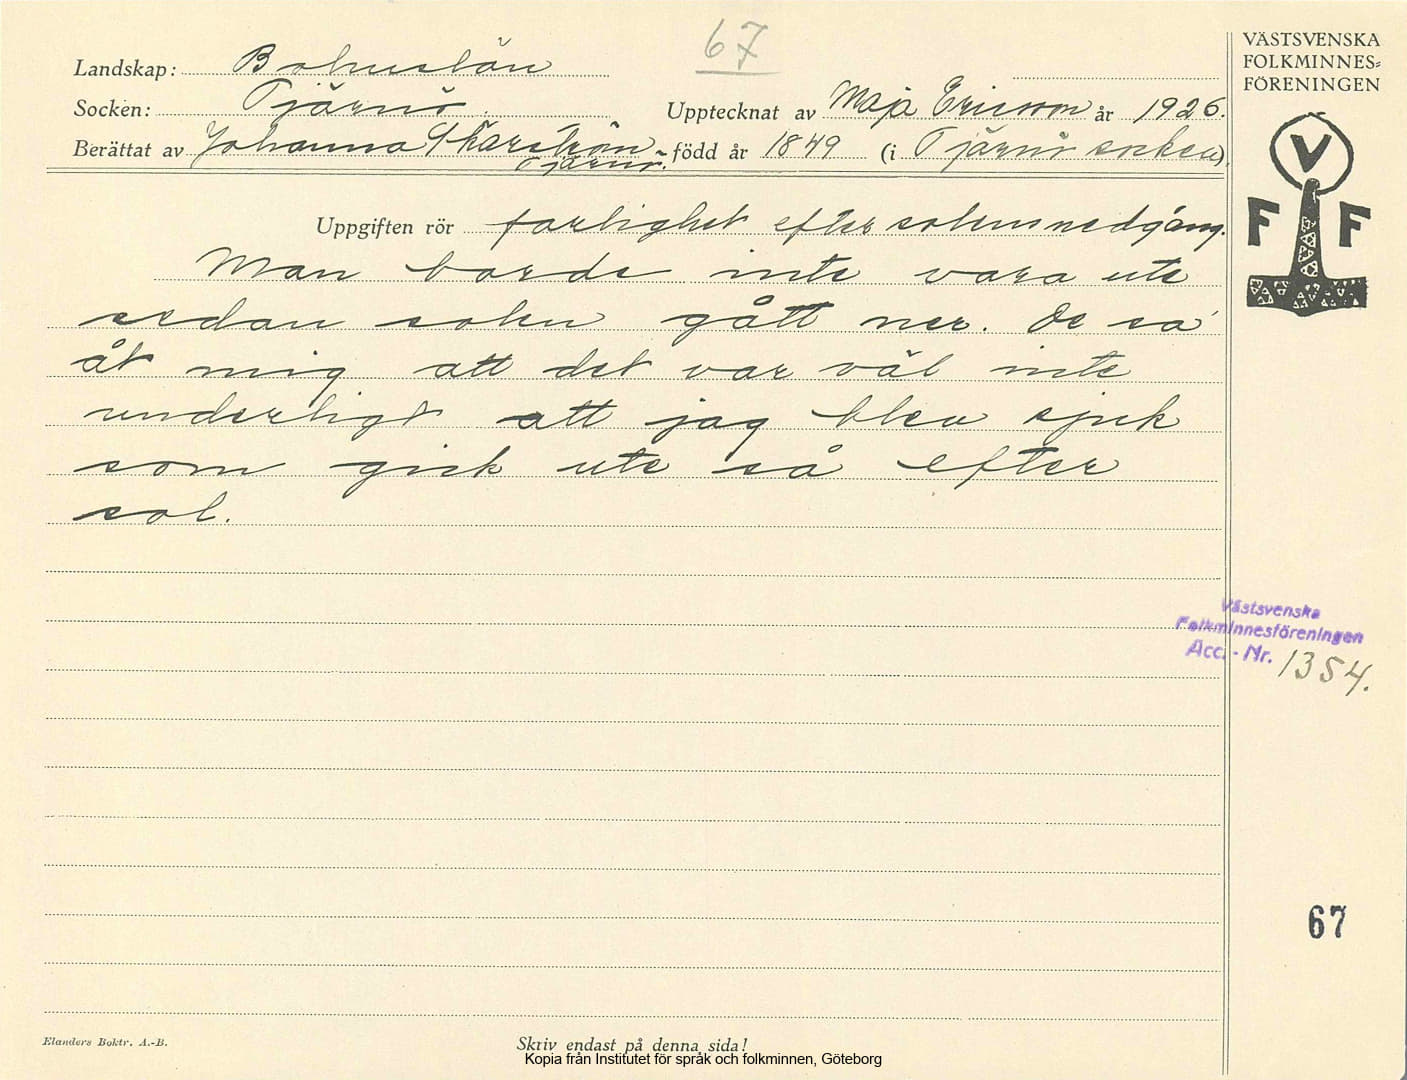 67
VÄSTSVENSKA
FOLKMINNES-
FÖRENINGEN
Landskap: Bohuslän
Socken: Tjärnö Upptecknat av Maja Ericson år 1926.
Berättat av Johanna Skarström född år 1849 (i Tjärnö socken)
Tjärnö.
V
F F
Uppgiften rör farlighet efter solens nedgång.
Man borde inte vara ute
sedan solen gått ner. De sa
åt mig att det var väl inte
underligt att jag blev sjuk
som gick ute så efter
sol.
Västsvenska
Folkminnesföreningen
Acc.-Nr. 1354.
67
Elanders Boktr. A.-B.
Skriv endast på denna sida!
Kopia från Institutet för språk och folkminnen, Göteborg